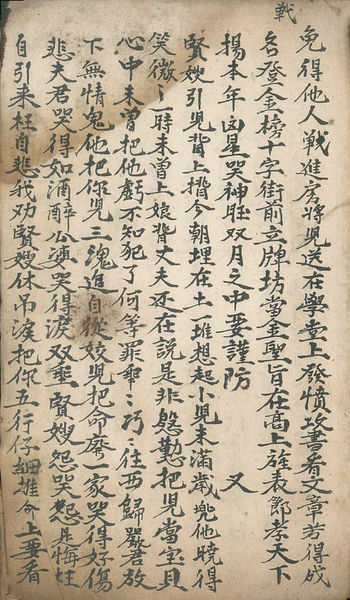 戰
免得他人戰進房將児送在學堂上發憤攻書看文章若得成
名登金榜十字街前立牌坊當今聖旨在高上旌表節孝天下
揚本年凶星哭神旺双月之中要謹防 又
賢嫂引児背上揹今朝埋在土一堆想起小児未滿歲兜他曉得
笑微〻一時未曾上娘背丈夫还在説是非慇懃把児當宝貝
心中未曾把他虧不知犯了何等罪孽〻〻往西歸嚴君放
下無情鬼他把你児三魂追自從姣児把命廢一家哭得好傷
悲夫君哭得如酒醉公婆哭得淚双垂賢嫂怨哭怨是悔枉
自引来枉自悲我劝賢嫂休吊淚把你五行仔細雄命上要看